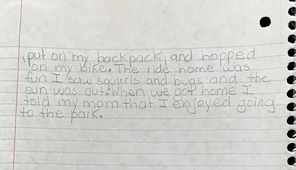 I put on my backpack, and hopped
on my bike. The ride home was
fun I saw squirrls and bugs and the
sun was out. When we got home I
told my mom that I enjoyed going
to the park.